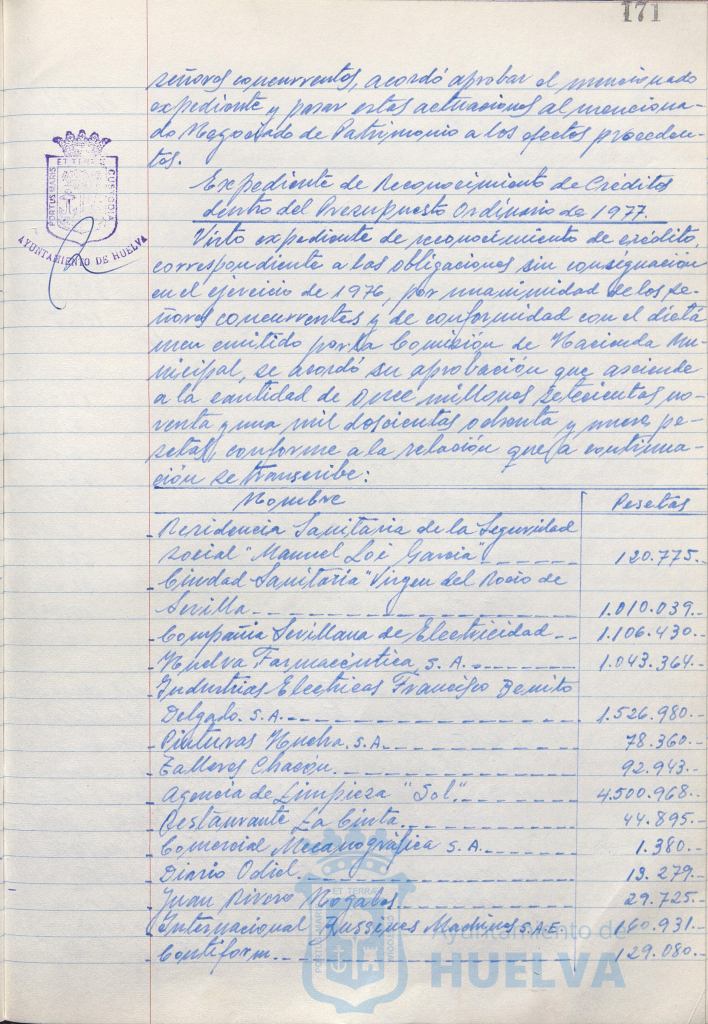 171
señores concurrentes, acordó aprobar el mencionado
expediente y pasar estas actuaciones al menciona-
do Negociado de Patrimonio a los efectos proceden-
tes.
Expediente de Reconocimiento de Créditos
dentro del Presupuesto Ordinario de 1977.
Visto expediente de reconocimiento de crédito,
correspondiente a las obligaciones sin consignación
en el ejercicio de 1976, por unanimidad de los se-
ñores concurrentes y de conformidad con el dictá
men emitido por la Comisión de Hacienda Mu-
nicipal, se acordó su aprobación que asciende
a la cantidad de once millones setecientas no-
venta y una mil doscientas ochenta y nueve pe-
setas, conforme a la relación que a continua-
ción se transcribe:
Nombre Pesetas
- Residencia Sanitaria de la Seguridad
Social "Manuel Loi Garcia" 120.775.-
- Ciudad Sanitaria "Virgen del Rocio de
Sevilla 1.010.039.-
- Compañia Sevillana de Electricidad 1.106.430.-
- Huelva Farmacéutica, S.A. 1.043.364.-
- Industrias Electricas Francisco Benito
Delgado. S.A. 1.526.980.-
- Pinturas Huelva. S.A. 78.360.-
- Talleres Chacón. 92.943.-
- Agencia de Limpieza "Sol" 4.500.968.-
- Restaurante La Cinta 44.895.-
- Comercial Mecanográfica S.A. 1.380.-
- Diario Odiel 13.279.-
- Juan Rivero Nogales 29.725.-
- Internacional Bussines Machines S.A.E. 160.931.-
- Contiform 129.080.-
PORTUS MARIS ET TERRAE CUSTODIA
AYUNTAMIENTO DE HUELVA
PORTUS MARIS ET TERRAE CUSTODIA
Ayuntamiento de
HUELVA